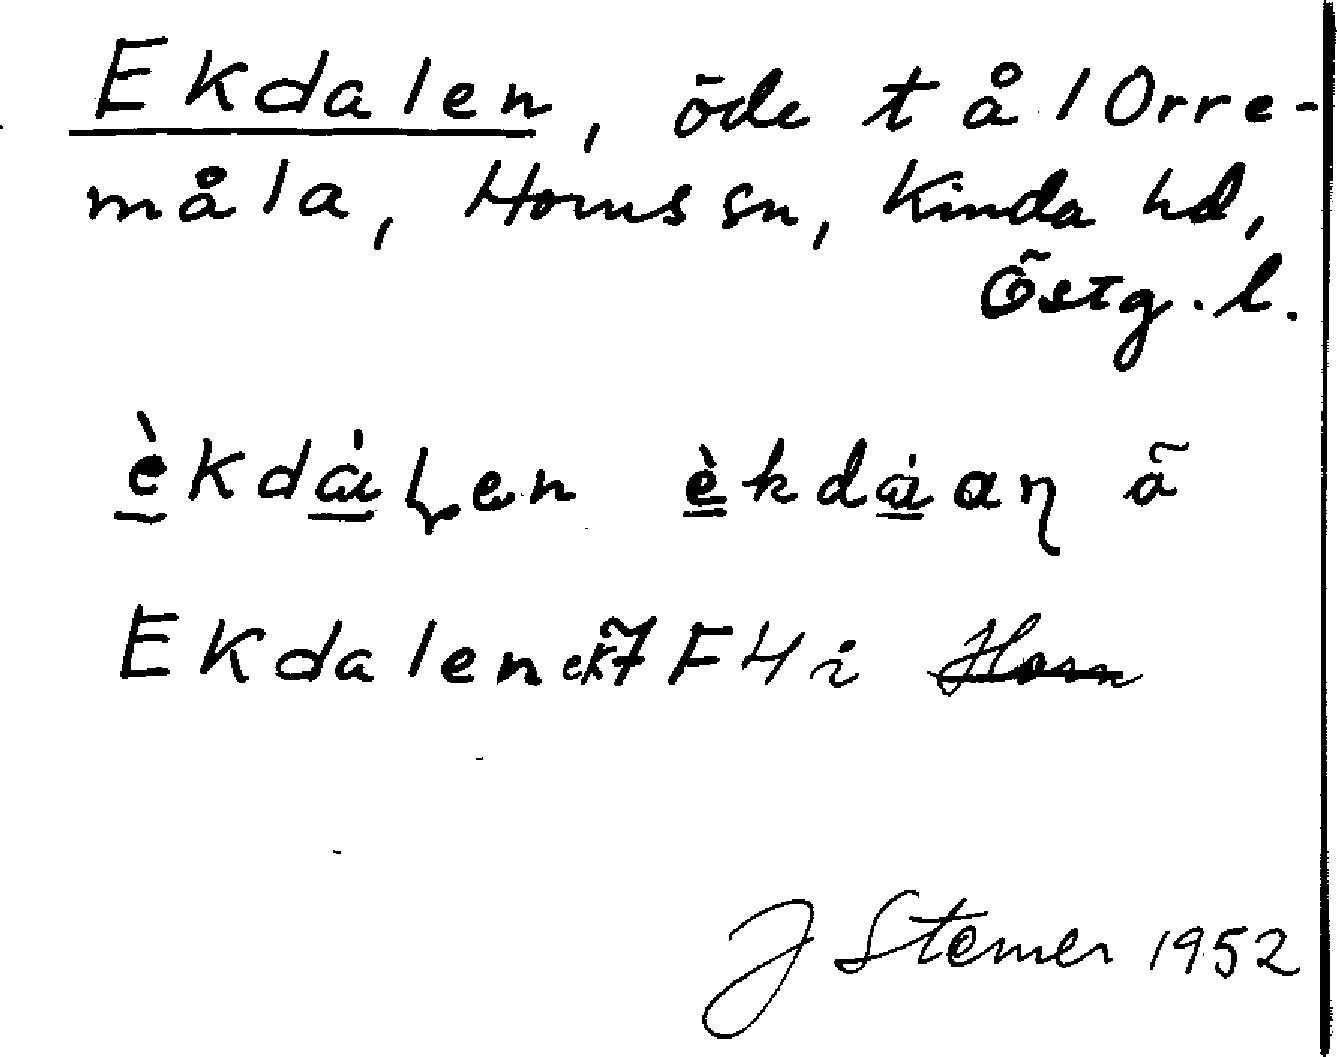 Ekdalen, öde t ål Orre-
måla, Horns sn, Kinda hd,
Östg. l.
èkdáļen èkdáaη ã
Ekdalen ek 7 F 4 i Horn
J Stemer 1952